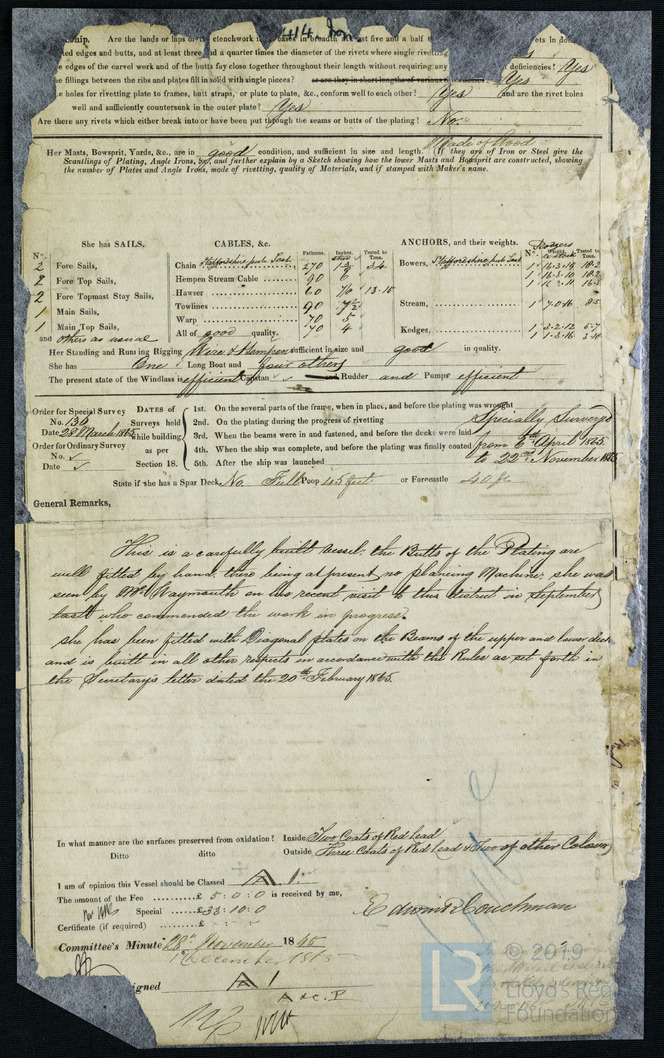 414 Iron
ship. Are the lands or laps of the clenchwork in cases in breadth at least five and a half t
ed edges and butts, and at least three and a quarter times the diameter of the rivets where single rivetting
e edges of the carvel work and of the butts fay close together throughout their length without requiring any deficiencies? Yes
e fillings between the ribs and plates fill in solid with single pieces? Yes
e holes for rivetting plate to frames, butt straps, or plate to plate, &c., conform well to each other? Yes and are the rivet holes
well and sufficiently countersunk in the outer plate? Yes
Are there any rivets which either break into or have been put through the seams or butts of the plating? No.
Made of Wood
Her Masts, Bowsprit, Yards, &c., are in good condition, and sufficient in size and length. If they are of Iron or Steel give the
Scantlings of Plating, Angle Irons, &c., and further explain by a Sketch showing how the lower Masts and Bowsprit are constructed, showing
the number of Plates and Angle Irons, mode of rivetting, quality of Materials, and if stamped with Maker's name.
She has SAILS, CABLES, &c. Fathoms. Inches. Tested to Tons. ANCHORS, and their weights. Rodgers No. Weight. Tested to Tons.
No.
2 Fore Sails, Chain Staffordshire pub Test 270 34 Bowers, Staffordshire pub Test
2 Fore Top Sails, Hempen Stream Cable 90
2 Fore Topmast Stay Sails, Hawser 60 13-15
1 Main Sails, Towlines 90 7½ Stream, 1 7.0.16 8.5
1 Main Top Sails, Warp 70 5
and others as usual All of good quality. 70 4 Kedges, 1 3.2.12 5.7
Her Standing and Running Rigging Wire & Hempen sufficient in size and good in quality.
She has One Long Boat and four others
The present state of the Windlass is efficient Capstan and Rudder and Pumps efficient
Order for Special Survey
No. 136
Date 28 March 1865
Order for Ordinary Survey
No.
Date
DATES of Surveys held while building as per Section 18.
1st. On the several parts of the frame, when in place, and before the plating was wrought
2nd. On the plating during the progress of rivetting
3rd. When the beams were in and fastened, and before the decks were laid
4th. When the ship was complete, and before the plating was finally coated
5th. After the ship was launched
Specially Surveyed
from 6th April 1865
to 22nd November 1865
State if she has a Spar Deck No. Full Poop 45 feet or Forecastle 40 ft
General Remarks,
This is a carefully built vessel, the Butts of the Plating are
well fitted by hand, there being at present no planeing Machine, she was
seen by Mr Waymouth on his recent visit to this district in September
last who commended the work in progress.
She has been fitted with Diagonal plates on the Beams of the upper and lower deck
and is built in all other respects in accordance with the Rules as set forth in
the Secretary's letter dated the 20th February 1865.
In what manner are the surfaces preserved from oxidation? Inside Two Coats of Red Lead
Ditto ditto Outside Three Coats of Red Lead & Two of other Colour
I am of opinion this Vessel should be Classed A 1
The amount of the Fee £ 5 : 0 : 0 is received by me,
Special £ 33 : 10 : 0
Edwin Couchman
Certificate (if required) £
Committee's Minute 28th November 1865
1 December 1865
signed A 1
A & C. P
LR © 2019
Lloyd's Register
Foundation